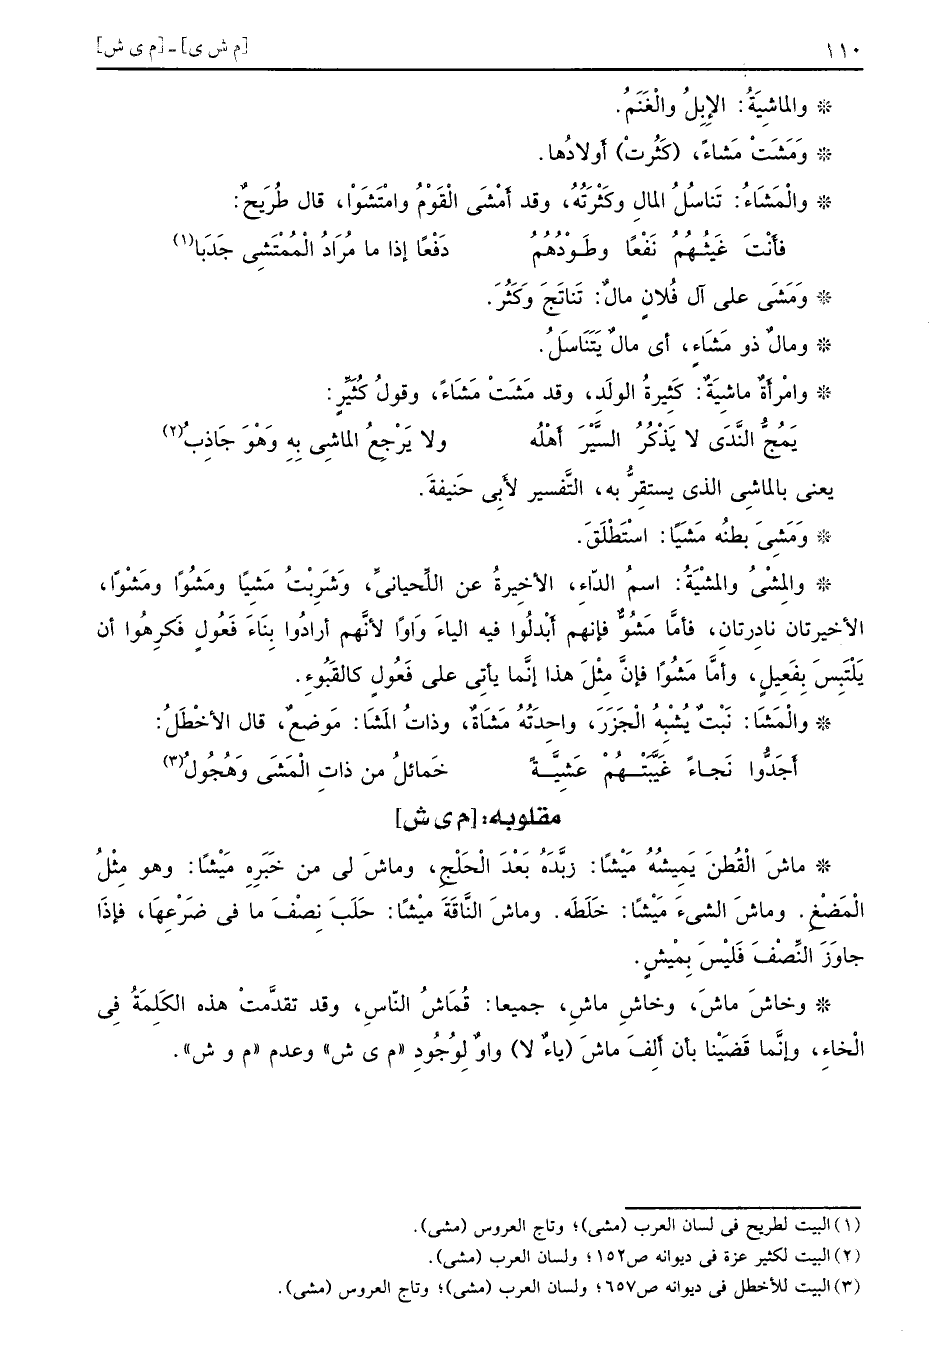 ١١٠ [م ش ى] ـ [م ى ش]
* والماشيَةُ: الإِبِلُ والْغَنَمُ.
* وَمَشَتْ مَشاءً، (كَثُرتْ) أولادُها.
* والْمَشَاءُ: تَناسُلُ المالِ وكَثْرَتُهُ، وقد أَمْشَى الْقَوْمُ وامْتَشَوْا، قال طُرَيحٌ:
فأَنْتَ غَيْثُـهُمُ نَفْعًا وطَـوْدُهُمُ دَفْعًا إذا ما مُرَادُ الْمُمْتَشِى جَدَبا(١)
* وَمَشَى على آل فُلانٍ مالٌ: تَناتَجَ وَكَثُرَ.
* ومالٌ ذو مَشَاءٍ، أى مالٌ يَتَنَاسَلُ.
* وامْرأةٌ ماشيَةٌ: كَثِيرةُ الولَدِ، وقد مَشَتْ مَشَاءً، وقولُ كُثَيِّرٍ:
يَمُجُّ النَّدَى لا يَذْكُرُ السَّيْرَ أهْلُه ولا يَرْجِعُ الماشِى بِه وَهْوَ جَاذِبُ(٢)
يعنى بالماشِى الذى يستقِرُّ به، التَّفسير لأبِى حَنيفةَ.
* وَمَشىَ بطنُه مَشيًا: اسْتَطْلَقَ.
* والمشْىُ والمشْيَةُ: اسمُ الدّاءِ، الأخيرةُ عن اللّحيانىِّ، وَشَرِبْتُ مَشيًا ومَشُوًا ومَشْوًا،
الأخيرتان نادرتان، فأمَّا مَشُوٌّ فإنهم أبْدلُوا فيه الياءَ وَاوًا لأنَّهم أرادُوا بِناءَ فَعُولٍ فَكرِهُوا أن
يَلْتَبِسَ بِفَعِيلٍ، وأمَّا مَشُوًا فإنَّ مِثْلَ هذا إنَّما يأتى على فَعُولٍ كالقَبُوءِ.
* والْمَشَا: نَبْتٌ يُشْبِهُ الْجَزَرَ، واحِدَتُهُ مَشَاةٌ، وذاتُ المَشَا: مَوضعٌ، قال الأخْطَلُ:
أجَدُّوا نَجـاءً غَيَّبَتْـهُمْ عَشِيَّـةً خَمائلُ من ذاتِ الْمَشَى وَهُجُولُ(٣)
مقلوبه: [م ى ش]
* ماشَ القُطنَ يَمِيشُهُ مَيْشًا: زبَّدَهُ بَعْدَ الْحَلْجِ، وماشَ لى من خَبَرِهِ مَيْشًا: وهو مِثْلُ
الْمَضْغِ. وماشَ الشىءَ مَيْشًا: خَلَطَه. وماشَ النَّاقَةَ ميْشًا: حَلَبَ نِصْفَ ما فى ضَرْعِهَا، فإذَا
جاوَزَ النِّصْفَ فَليْسَ بِمْيشٍ.
* وخاشَ ماشَ، وخاشِ ماشِ، جميعا: قُمَاشُ النّاسِ، وقد تقدَّمتْ هذه الكَلِمَةُ فِى
الْخاءِ، وإنَّما قَضَيْنا بأن ألِفَ ماشَ (ياءٌ لا) واوٌ لِوُجُودِ «م ى ش» وعدم «م و ش».
(١) البيت لطريح فى لسان العرب (مشى)؛ وتاج العروس (مشى).
(٢) البيت لكثير عزة فى ديوانه ص١٥٢؛ ولسان العرب (مشى).
(٣) البيت للأخطل فى ديوانه ص٦٥٧؛ ولسان العرب (مشى)؛ وتاج العروس (مشى).